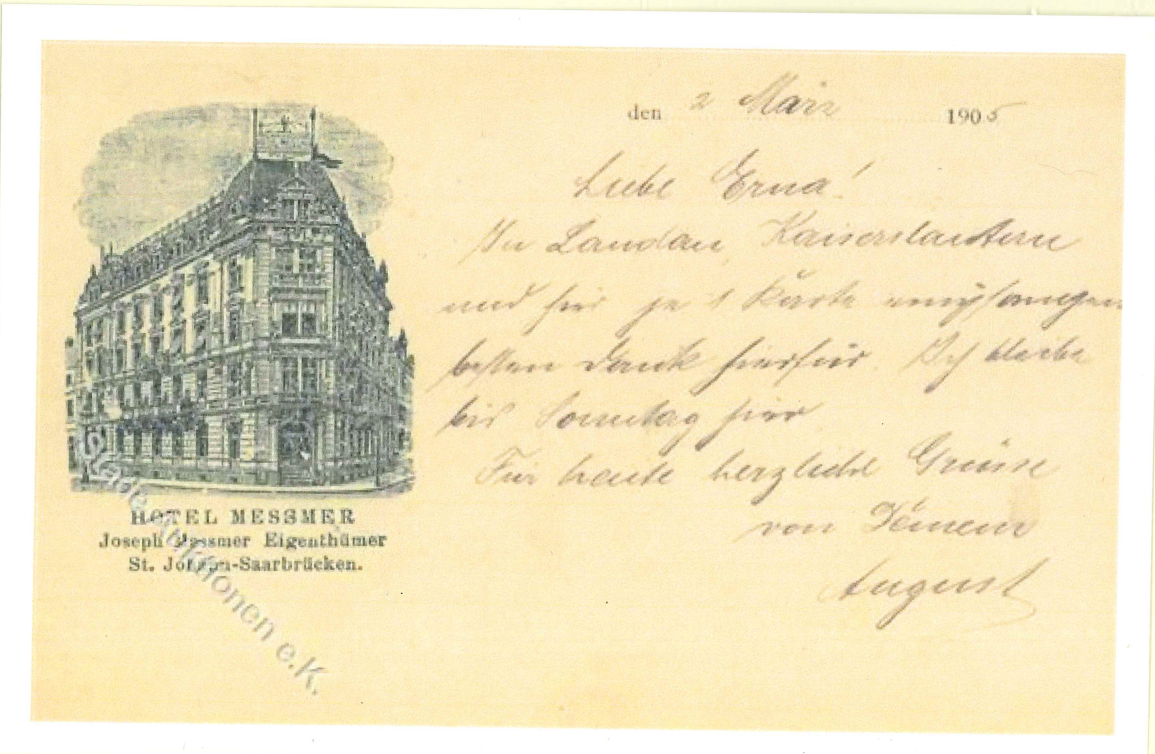 den 2 März 1905
Liebe Erna!
In Landau, Kaiserslautern
und hier je 1 Karte empfangen
besten Dank hierfür. Ich bleibe
bis Sonntag hier
Für heute herzliche Grüsse
von Deinem
August
HOTEL MESSMER
Joseph Messmer Eigenthümer
St. Johann-Saarbrücken.
Auktionen e.K.